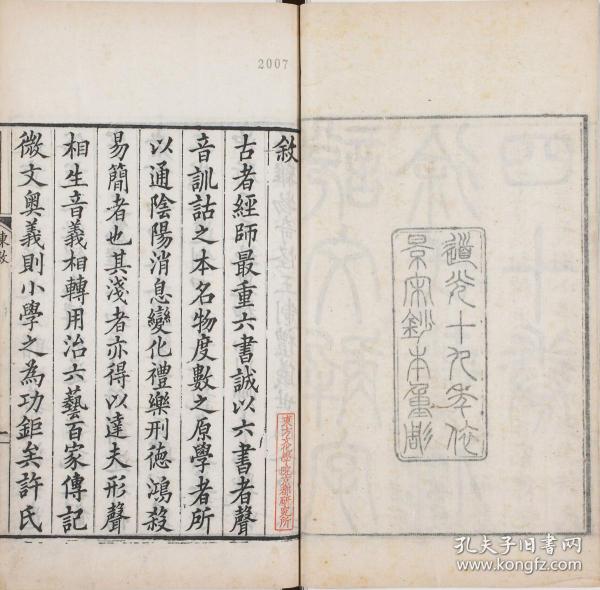 道光十九年依
景宋鈔本重彫
2007
敘
古者經師最重六書誠以六書者聲
音訓詁之本名物度數之原學者所
以通陰陽消息變化禮樂刑德鴻殺
易簡者也其淺者亦得以達夫形聲
相生音義相轉用治六藝百家傳記
微文奧義則小學之為功鉅矣許氏
東方文化學院京都研究所
孔夫子旧书网
www.kongfz.com